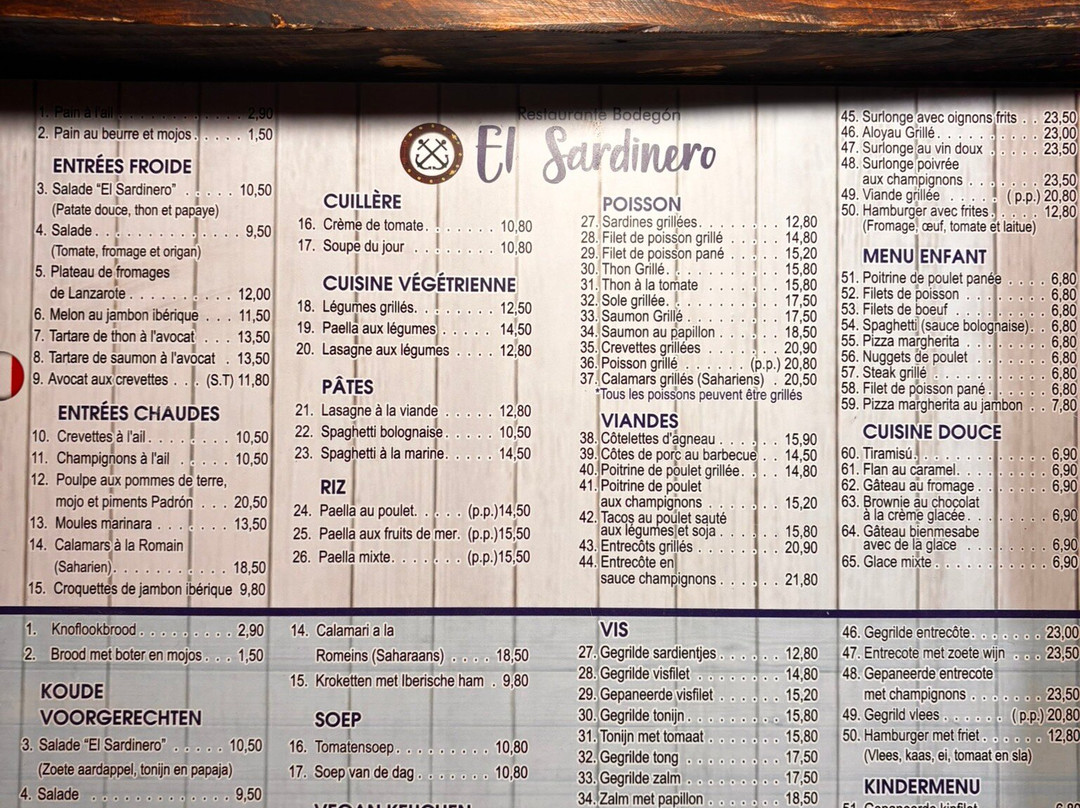 1. Pain à l'ail . . . . . . . . . . . . . . . . . 2,90
2. Pain au beurre et mojos . . . . . . 1,50
ENTRÉES FROIDE
3. Salade “El Sardinero” . . . . . . 10,50
(Patate douce, thon et papaye)
4. Salade . . . . . . . . . . . . . . . . . 9,50
(Tomate, fromage et origan)
5. Plateau de fromages
de Lanzarote . . . . . . . . . . . . 12,00
6. Melon au jambon ibérique . . . 11,50
7. Tartare de thon à l'avocat . . . 13,50
8. Tartare de saumon à l'avocat . 13,50
9. Avocat aux crevettes . . . (S.T) 11,80
ENTRÉES CHAUDES
10. Crevettes à l'ail . . . . . . . . . 10,50
11. Champignons à l'ail . . . . . . 10,50
12. Poulpe aux pommes de terre,
mojo et piments Padrón . . . . 20,50
13. Moules marinara . . . . . . . . 13,50
14. Calamars à la Romain
(Saharien) . . . . . . . . . . . . 18,50
15. Croquettes de jambon ibérique 9,80
Restaurante Bodegón
El Sardinero
CUILLÈRE
16. Crème de tomate . . . . . . . . 10,80
17. Soupe du jour . . . . . . . . . . 10,80
CUISINE VÉGÉTRIENNE
18. Légumes grillés . . . . . . . . . 12,50
19. Paella aux légumes . . . . . . 14,50
20. Lasagne aux légumes . . . . . 12,80
PÂTES
21. Lasagne à la viande . . . . . . 12,80
22. Spaghetti bolognaise . . . . . . 10,50
23. Spaghetti à la marine . . . . . . 14,50
RIZ
24. Paella au poulet . . . . . . (p.p.)14,50
25. Paella aux fruits de mer. (p.p.)15,50
26. Paella mixte . . . . . . . . (p.p.)15,50
POISSON
27. Sardines grillées . . . . . . . . . 12,80
28. Filet de poisson grillé . . . . . . 14,80
29. Filet de poisson pané . . . . . . 15,20
30. Thon Grillé . . . . . . . . . . . . 15,80
31. Thon à la tomate . . . . . . . . 15,80
32. Sole grillée . . . . . . . . . . . . 17,50
33. Saumon Grillé . . . . . . . . . . 17,50
34. Saumon au papillon . . . . . . . 18,50
35. Crevettes grillées . . . . . . . . 20,90
36. Poisson grillé . . . . . . . (p.p.) 20,80
37. Calamars grillés (Sahariens) . 20,50
*Tous les poissons peuvent être grillés
VIANDES
38. Côtelettes d'agneau . . . . . . . 15,90
39. Côtes de porc au barbecue . . . 14,50
40. Poitrine de poulet grillée . . . . 14,80
41. Poitrine de poulet
aux champignons . . . . . . . . 15,20
42. Tacos au poulet sauté
aux légumes et soja . . . . . . . 15,80
43. Entrecôts grillés . . . . . . . . . 20,90
44. Entrecôte en
sauce champignons . . . . . . . 21,80
45. Surlonge avec oignons frits . . . 23,50
46. Aloyau Grillé . . . . . . . . . . . 23,00
47. Surlonge au vin doux . . . . . . 23,50
48. Surlonge poivrée
aux champignons . . . . . . . . 23,50
49. Viande grillée . . . . . . . (p.p.) 20,80
50. Hamburger avec frites . . . . . . 12,80
(Fromage, œuf, tomate et laitue)
MENU ENFANT
51. Poitrine de poulet panée . . . . 6,80
52. Filets de poisson . . . . . . . . . 6,80
53. Filets de boeuf . . . . . . . . . . 6,80
54. Spaghetti (sauce bolognaise) . . 6,80
55. Pizza margherita . . . . . . . . . 6,80
56. Nuggets de poulet . . . . . . . . 6,80
57. Steak grillé . . . . . . . . . . . . 6,80
58. Filet de poisson pané . . . . . . 6,80
59. Pizza margherita au jambon . . 7,80
CUISINE DOUCE
60. Tiramisú . . . . . . . . . . . . . . 6,90
61. Flan au caramel . . . . . . . . . 6,90
62. Gâteau au fromage . . . . . . . 6,90
63. Brownie au chocolat
à la crème glacée . . . . . . . . 6,90
64. Gâteau bienmesabe
avec de la glace . . . . . . . . . 6,90
65. Glace mixte . . . . . . . . . . . . 6,90
1. Knoflookbrood . . . . . . . . . . 2,90
2. Brood met boter en mojos . . . 1,50
KOUDE
VOORGERECHTEN
3. Salade “El Sardinero” . . . . . . 10,50
(Zoete aardappel, tonijn en papaja)
4. Salade . . . . . . . . . . . . . . . 9,50
14. Calamari a la
Romeins (Saharaans) . . . . . 18,50
15. Kroketten met Iberische ham . 9,80
SOEP
16. Tomatensoep . . . . . . . . . . 10,80
17. Soep van de dag . . . . . . . . 10,80
VEGAN KEUKEN
VIS
27. Gegrilde sardientjes . . . . . . . 12,80
28. Gegrilde visfilet . . . . . . . . . . 14,80
29. Gepaneerde visfilet . . . . . . . 15,20
30. Gegrilde tonijn . . . . . . . . . . 15,80
31. Tonijn met tomaat . . . . . . . . 15,80
32. Gegrilde tong . . . . . . . . . . . 17,50
33. Gegrilde zalm . . . . . . . . . . . 17,50
34. Zalm met papillon . . . . . . . . 18,50
46. Gegrilde entrecôte . . . . . . . . 23,00
47. Entrecote met zoete wijn . . . 23,50
48. Gepaneerde entrecote
met champignons . . . . . . . . 23,50
49. Gegrild vlees . . . . . . . (p.p.) 20,80
50. Hamburger met friet . . . . . . . 12,80
(Vlees, kaas, ei, tomaat en sla)
KINDERMENU
51. Gepaneerde kipfilet . . . . . . . 6,80